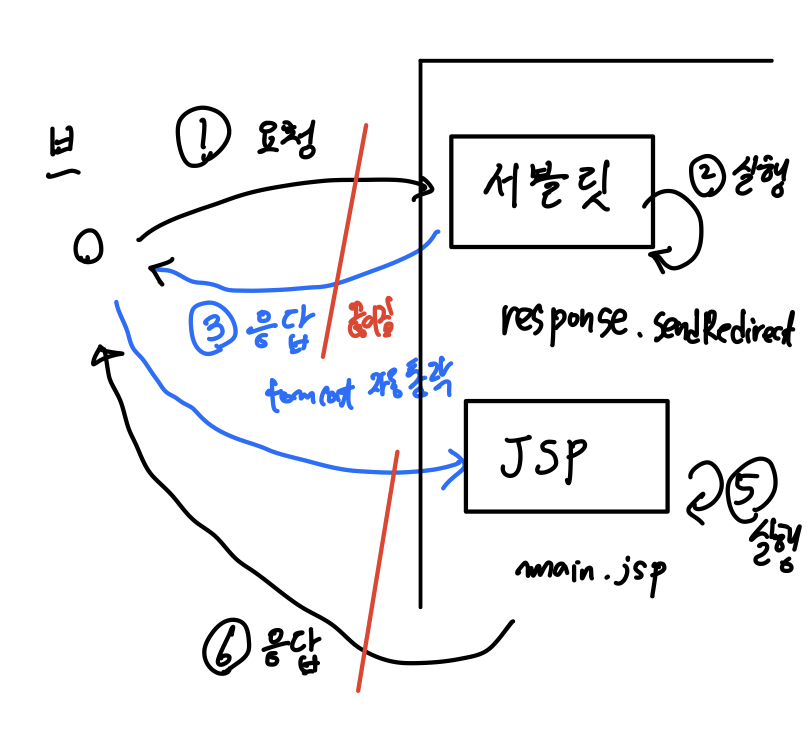 ① 요청
브
서블릿
② 실행
③ 응답
response.sendRedirect
JSP
⑤
실행
main.jsp
⑥ 응답